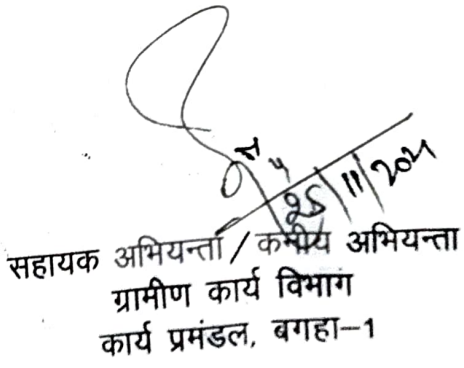 25/11/2021
सहायक अभियन्ता / कनीय अभियन्ता
ग्रामीण कार्य विभाग
कार्य प्रमंडल, बगहा-1